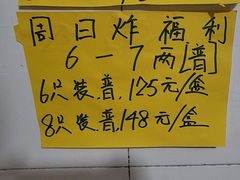 周日炸福利
6一7两[普]
6只装.普.125元/盒
8只装.普.148元/盒